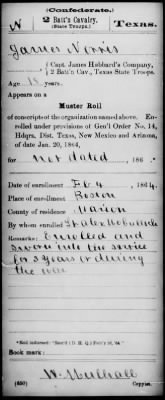 (Confederate.)
N 2 Batt's Cavalry, Texas.
(State Troops.)
James Norris
Capt. James Hubbard's Company,
2 Batt'n Cav., Texas State Troops.
Age 18 years.
Appears on a
Muster Roll
of conscripts of the organization named above. En-
rolled under provisions of Gen'l Order No. 14,
Hdqrs. Dist. Texas, New Mexico and Arizona,
of date Jan. 20, 1864,
for not dated, 186 .
Date of enrollment Feb 4, 1864.
Place of enrollment Boston
County of residence Marion
By whom enrolled Lt Alex
Remarks: Enrolled and
sworn into the service
for 3 years or during
the war
Book mark:
W. Mulhall
(650) Copyist.